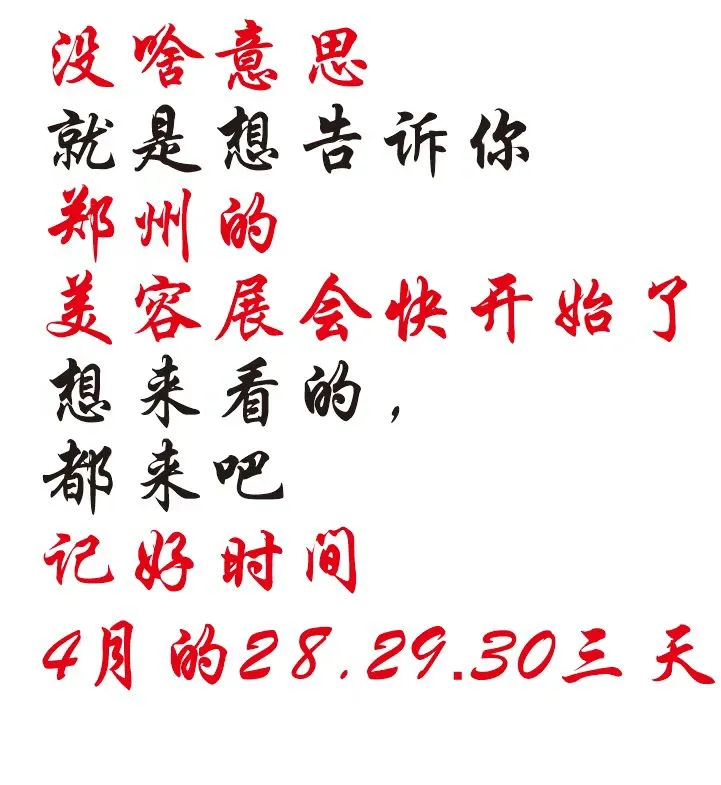 没啥意思
就是想告诉你
郑州的
美容展会快开始了
想来看的，
都来吧
记好时间
4月的28.29.30三天